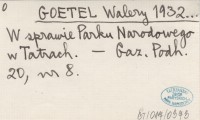 0
GOETEL Walery 1932...
W sprawie Parku Narodowego
w Tatrach. — Gaz. Podh.
20, nr 8.